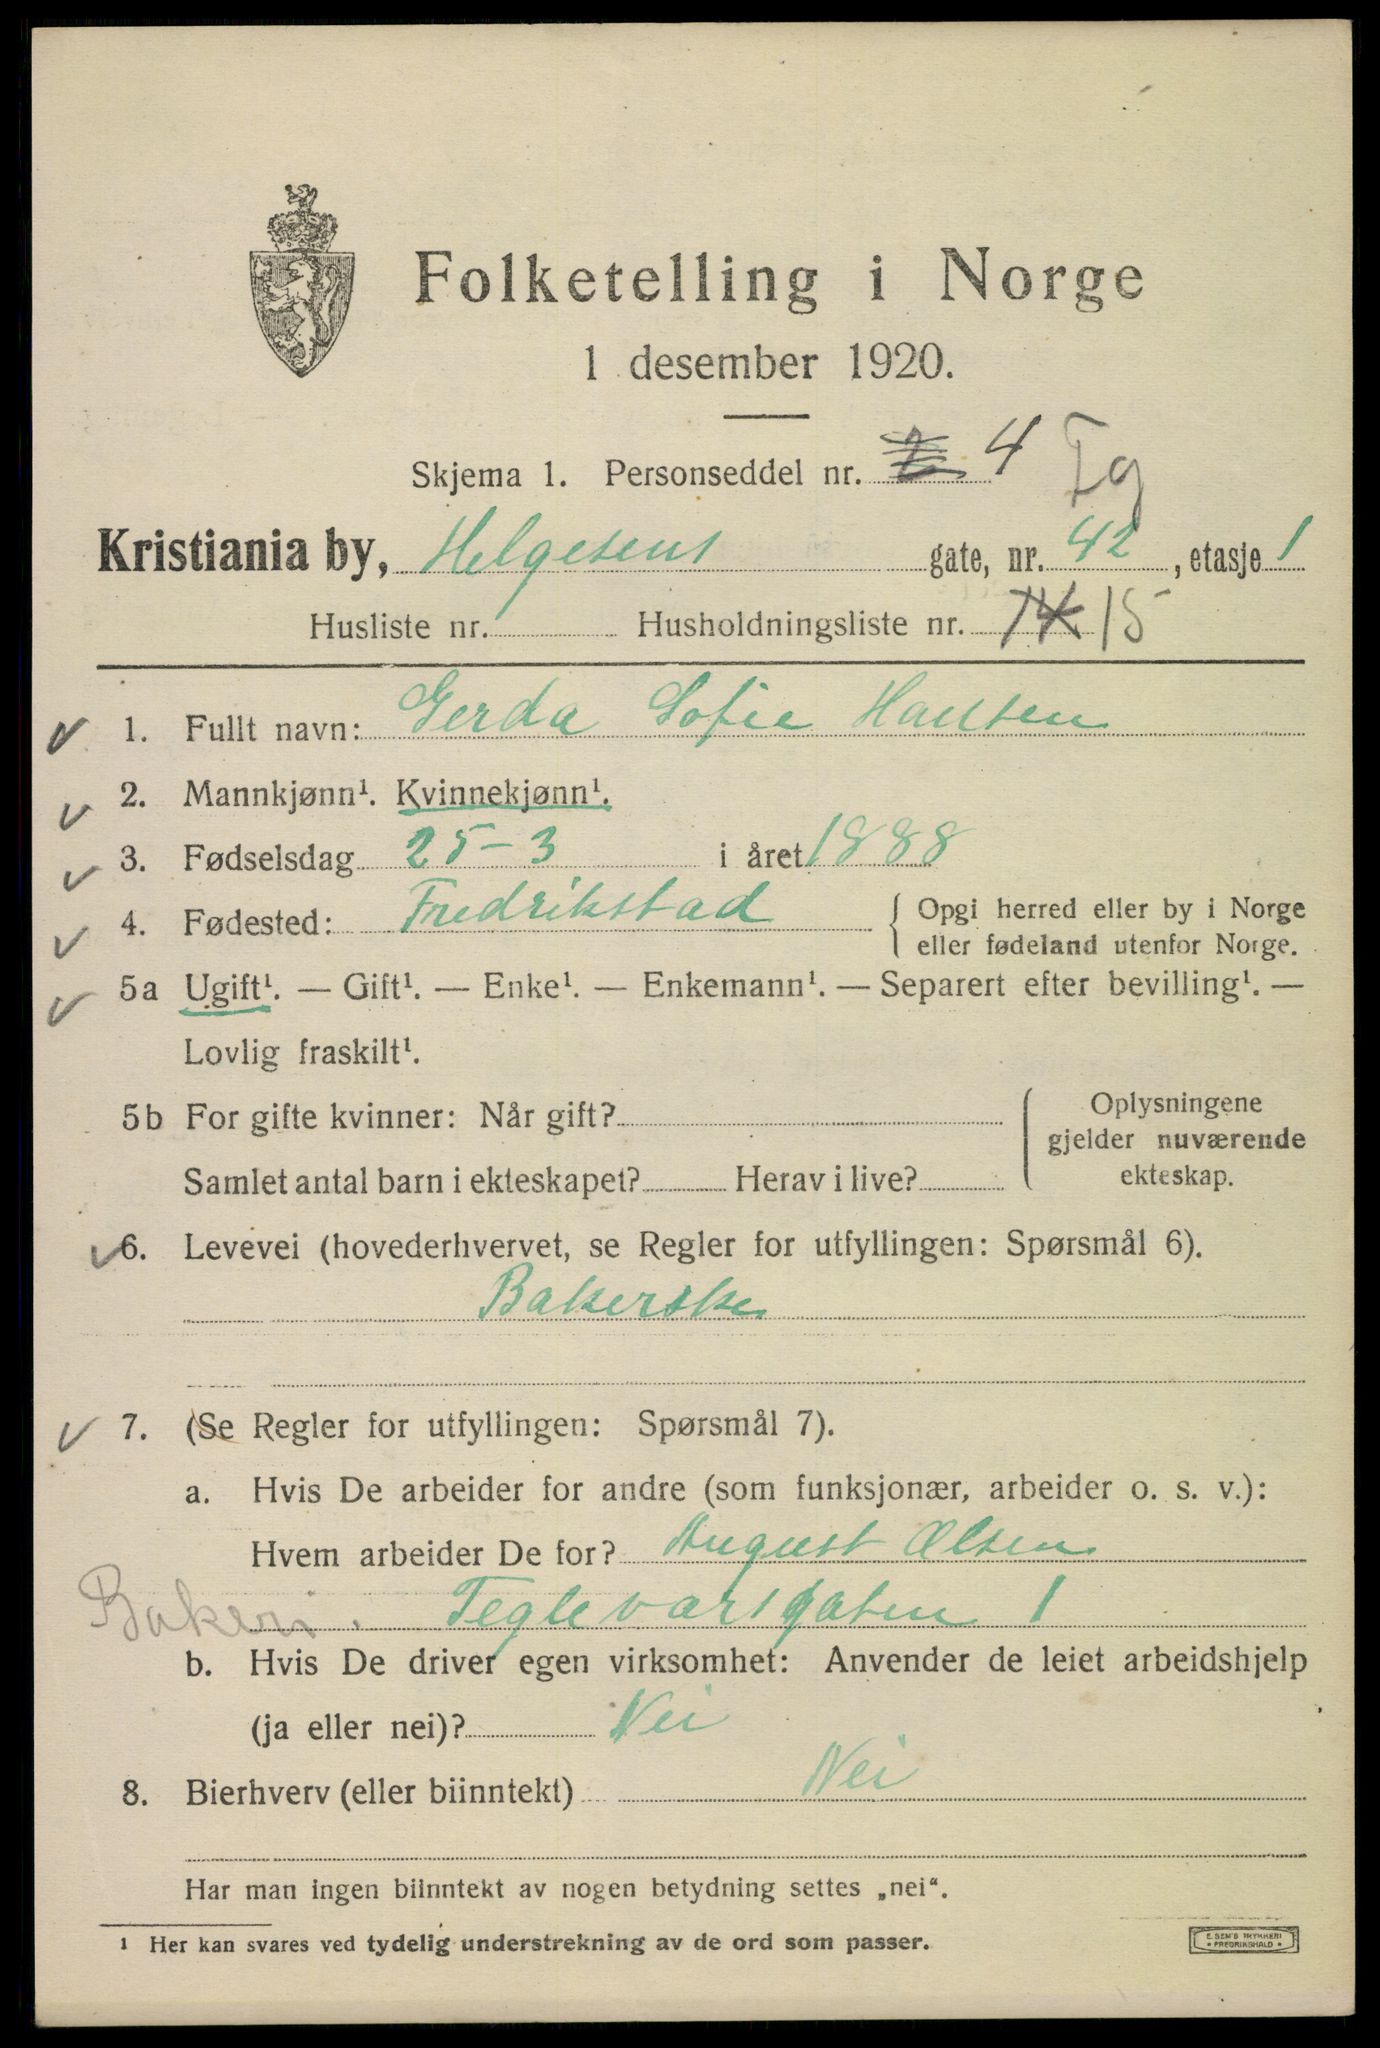 Folketelling i Norge
1 desember 1920.
Skjema 1. Personseddel nr. 4
Kristiania by, Helgesens gate, nr. 42, etasje 1
Husliste nr. Husholdningsliste nr. 14 15
1. Fullt navn: Gerda Sofie Hansen
2. Mannkjønn¹. Kvinnekjønn¹.
3. Fødselsdag 25-3 i året 1888
4. Fødested: Fredrikstad { Opgi herred eller by i Norge
eller fødeland utenfor Norge.
5a Ugift¹. — Gift¹. — Enke¹. — Enkemann¹. — Separert efter bevilling¹. —
Lovlig fraskilt¹.
5b For gifte kvinner: Når gift? { Oplysningene
gjelder nuværende
Samlet antal barn i ekteskapet? Herav i live? ekteskap.
6. Levevei (hovederhvervet, se Regler for utfyllingen: Spørsmål 6).
Bakerske
7. (Se Regler for utfyllingen: Spørsmål 7).
a. Hvis De arbeider for andre (som funksjonær, arbeider o. s. v.):
Hvem arbeider De for? August Olsen
Bakeri. Teglevarsgaten 1
b. Hvis De driver egen virksomhet: Anvender de leiet arbeidshjelp
(ja eller nei)? Nei
8. Bierhverv (eller biinntekt) Nei
Har man ingen biinntekt av nogen betydning settes „nei“.
¹ Her kan svares ved tydelig understrekning av de ord som passer.
E. SEM'S TRYKKERI
• FREDRIKSHALD •